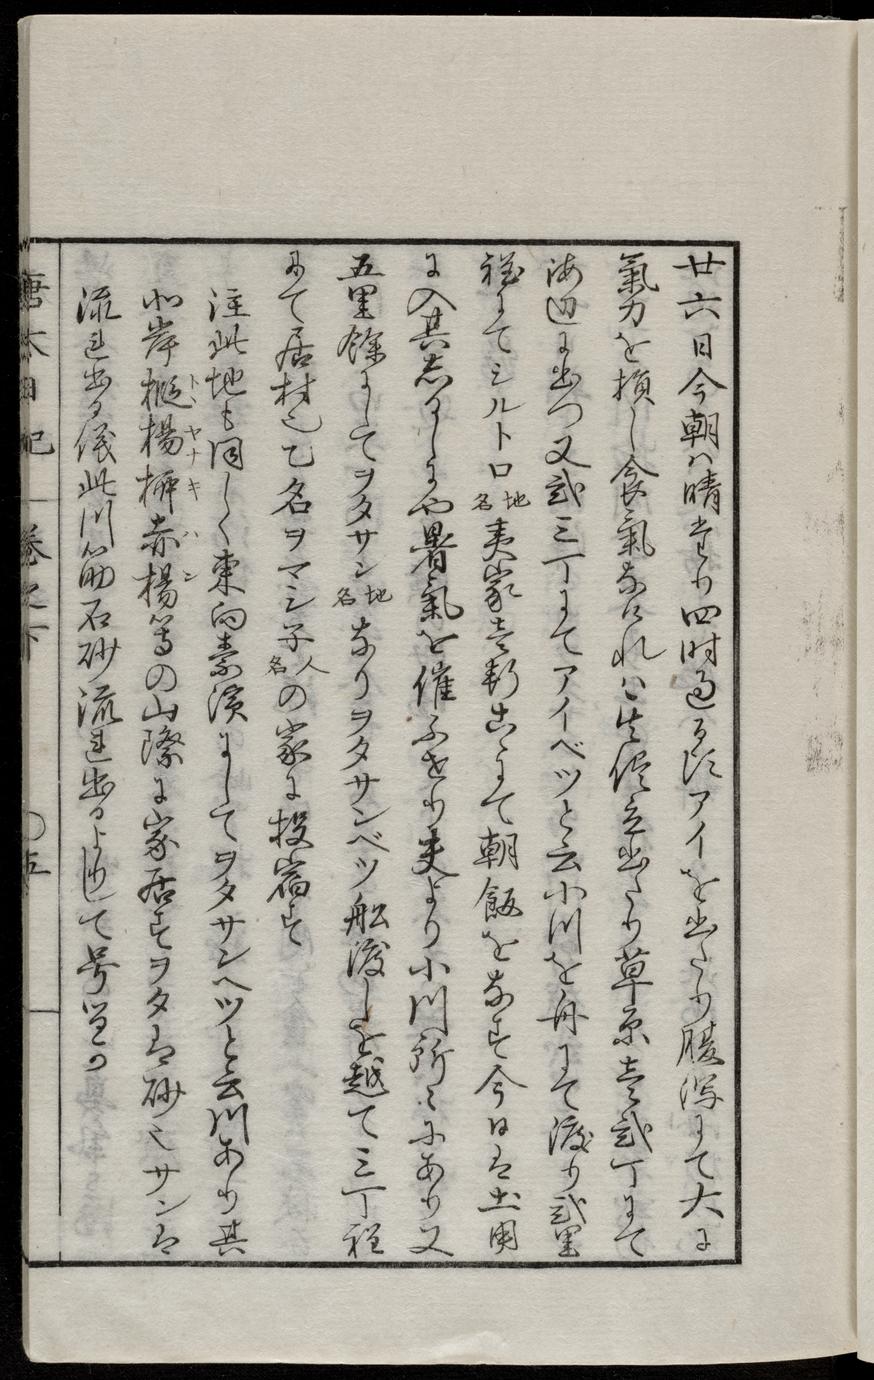 廿六日今朝ハ晴たり四時過る頃アイを出たり腹瀉にて大に
氣力を損し食氣なけれハ其儘立出たり草原壱弐丁にて
海辺に出つ又弐三丁にてアイベツと云小川を舟にて渡り弐里
程にてシルトロ地名夷家壱軒あにて朝飯をなす今日ハ土用
に入其しるしにや暑氣を催ふせり夫より小川所々にあり又
五里餘にしてヲタサン地名なりヲタサンベツ船渡しを越て三丁程
にて居村也乙名ヲマシ子人名の家に投宿す
注此地も同しく東向素濱にしてヲタサンヘツと云川あり其
北岸椴楊榛赤楊等の山際に家居すヲタハ砂也サンハ
トヽヤナキハン
流れ出る儀此川筋石砂流れ出るよりして号るか
唐太日記 巻之下 〇五